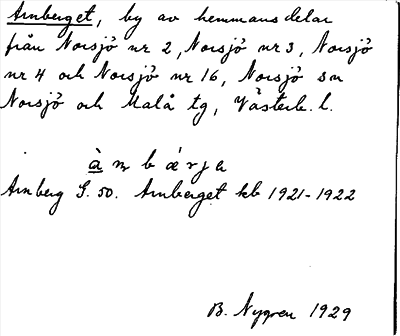 Arnberget, by av hemmansdelar
från Norsjö nr 2, Norsjö nr 3, Norsjö
nr 4 och Norsjö nr 16, Norsjö sn
Norsjö och Malå tg, Västerb. l.
à ṛn b æ r j e
Arnberg S. 50. Arnberget kb 1921-1922
B. Nygren 1929